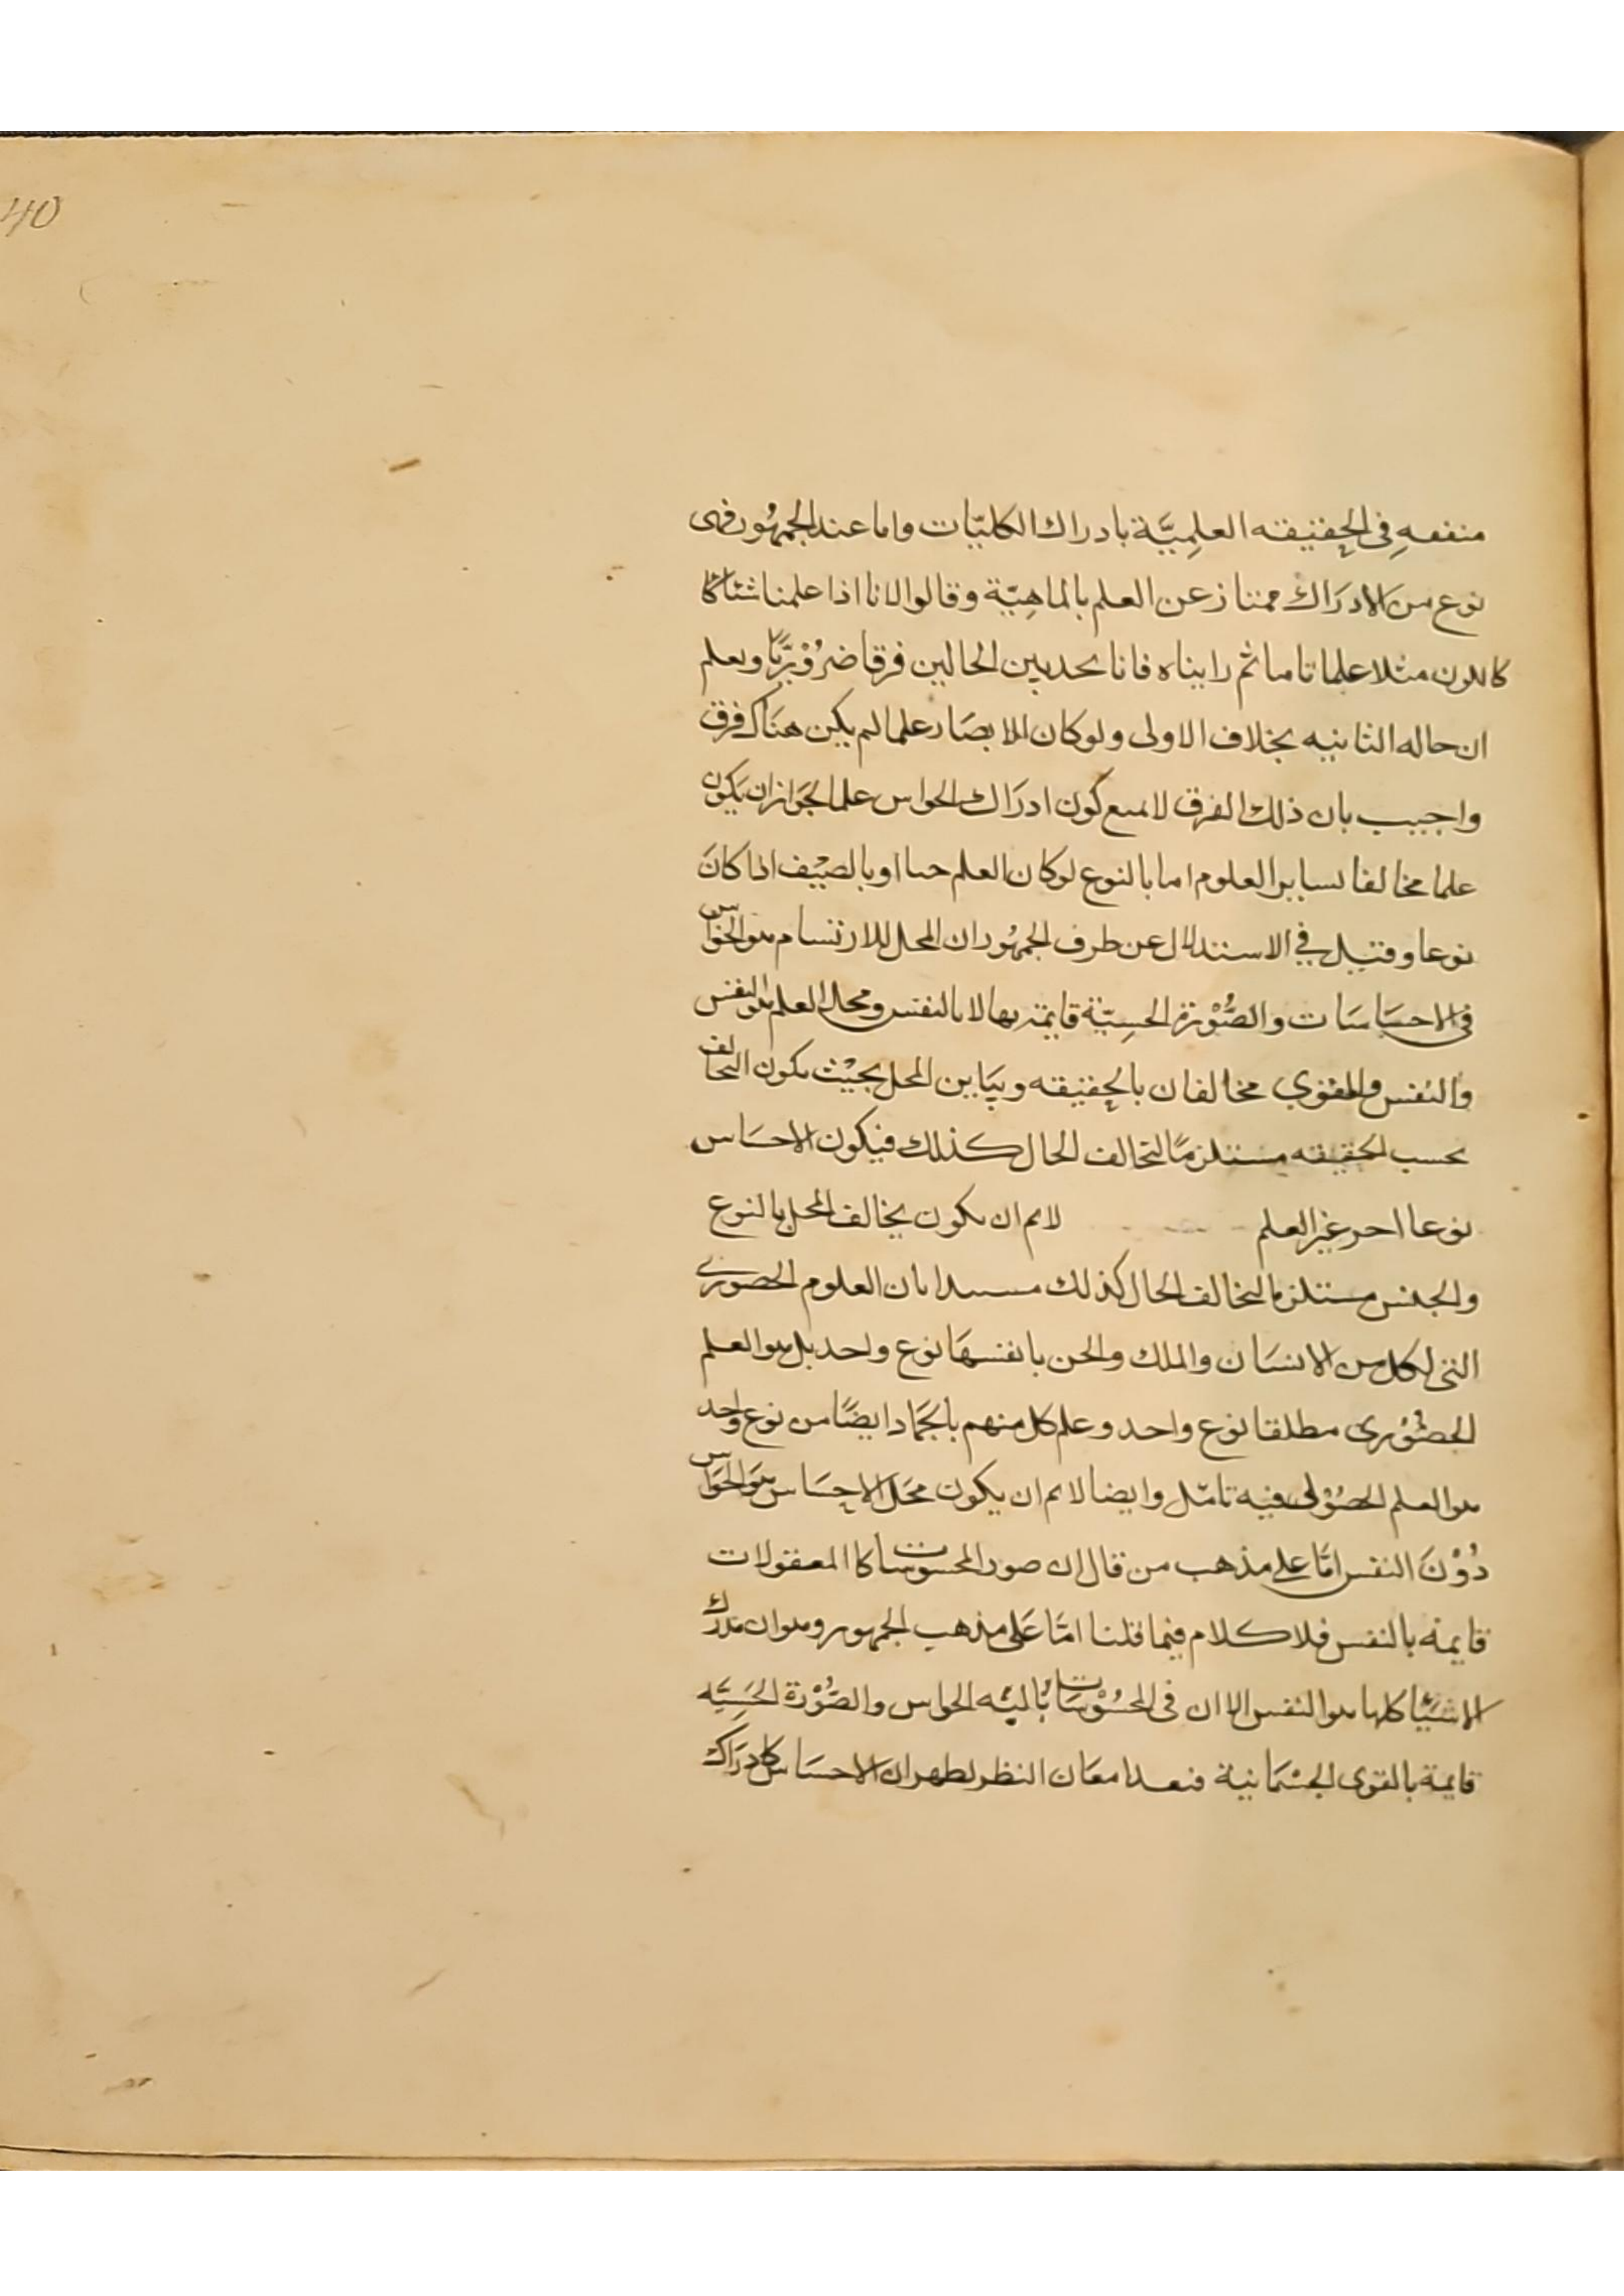 40
متفقه في الحقيقه العلمِيَّة بادراك الكليّات واما عند الجمهُور فهى
نوع من الادرَاك ممتاز عن العلم بالماهِيّة وقالوا لانا اذا علمنا شئا
كاللون مثلا علما تاما ثم رايناه فانا نجد بين الحالين فرقا ضرُوْرِيًّا ونعلم
ان حاله الثانيه بخلاف الاولى ولو كان الابصَار علما لم يكن هنَاك فرق
واجيب بان ذلك الفرق لا يمنع كون ادرَاك الحواس علما لجَواز ان يَكون
علما مخالفا لساير العلوم اما بالنوع لو كان العلم جنسا او بالصِنْف اذا كانَ
نوعا وقيل في الاستدلال عن طرف الجمهُور ان المحل للارتسام هو الحوَاس
فى الاحسَاسَات والصُّوْرَة الحسِيّة قايمة بها لا بالنفس ومحل العلم هو النفس
والنفس والقوي مخالفان بالحِقيقه وتبَاين المحل بحيْث يكون التخالف
بحسب الحقيقه مستلزمًا لتخالف الحال كذلك فيكون الاحسَاس
نوعا اخر غير العلم لانم ان يكون تخالف المحل بالنوع
والجنس مستلزما لتخالف الحال كذلك مستندا بان العلوم الحضوري
التى لكل من الانسَان والملك والجن بانفسهَا نوع واحد بل هو العلم
الحضُوْرى مطلقا نوع واحد وعلم كل منهم بالجمَاد ايضًا من نوع واحد
هو العلم الحصُوْلى فيه تامّل وايضا لانم ان يكون محَل الاحسَاس هوَ الحوَاس
دُوْنَ النفس امّا على مذهب من قال ان صور المحسوسات كا المعقولات
قايمة بالنفس فلا كلام فيما قلنا امّا عَلى مذهب الجمهور وهو ان مدرك
الاشيَا كلها هو النفس الا ان فى المحسُوْسَات بآليّه الحواس والصُّوْرَة الحسِيّه
قايمة بالقوى الجسْمَانية فبعد امعَان النظر يظهر ان الاحسَاس كادرَاك